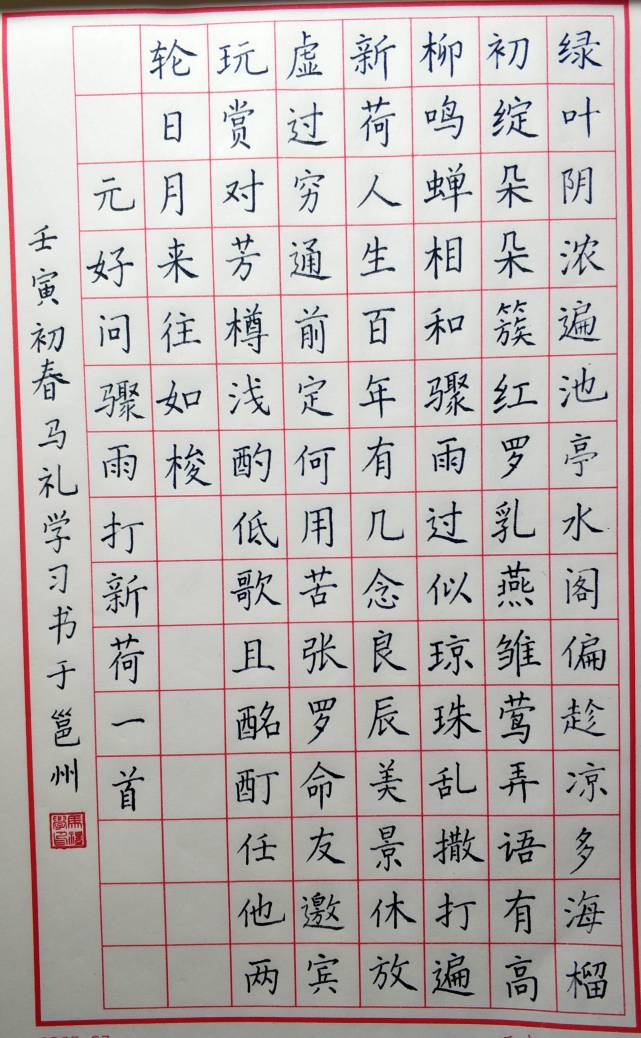 绿叶阴浓遍池亭水阁偏趁凉多海榴
初绽朵朵簇红罗乳燕雏莺弄语有高
柳鸣蝉相和骤雨过似琼珠乱撒打遍
新荷人生百年有几念良辰美景休放
虚过穷通前定何用苦张罗命友邀宾
玩赏对芳樽浅酌低歌且酩酊任他两
轮日月来往如梭
元好问骤雨打新荷一首
壬寅初春马礼学习书于邕州